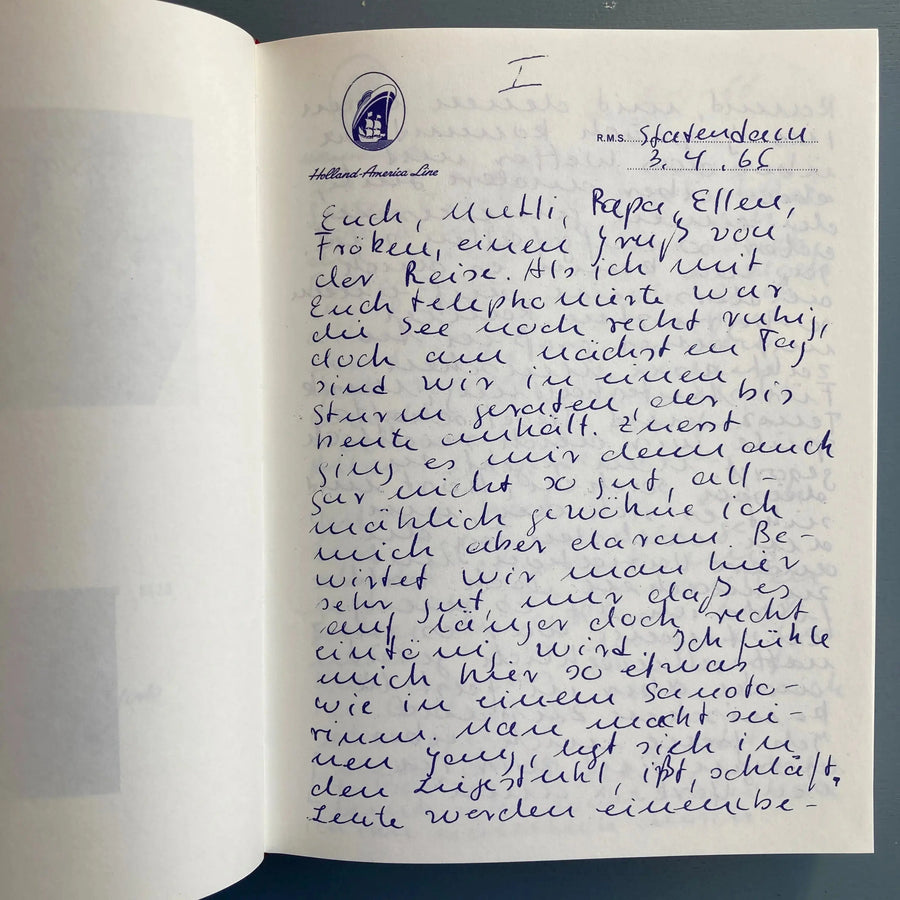 I
R.M.S. Statendam
3.4.65
Holland-America Line
Euch, Mutti, Papa, Ellen,
Fröken, einen Gruß von
der Reise. Als ich mit
Euch telephonierte war
die See noch recht ruhig,
doch am nächsten Tag
sind wir in einen
Sturm geraten, der bis
heute anhält. Zuerst
ging es mir denn auch
gar nicht so gut, all-
mählich gewöhne ich
mich aber daran. Be-
wirtet wir man hier
sehr gut, nur daß es
auf länger doch recht
eintöni wird. Ich fühle
mich hier so etwas
wie in einem Sanato-
rium. Man macht sei-
nen Gang, legt sich in
den Liegestuhl, ißt, schläft.
Leute werden einem be-